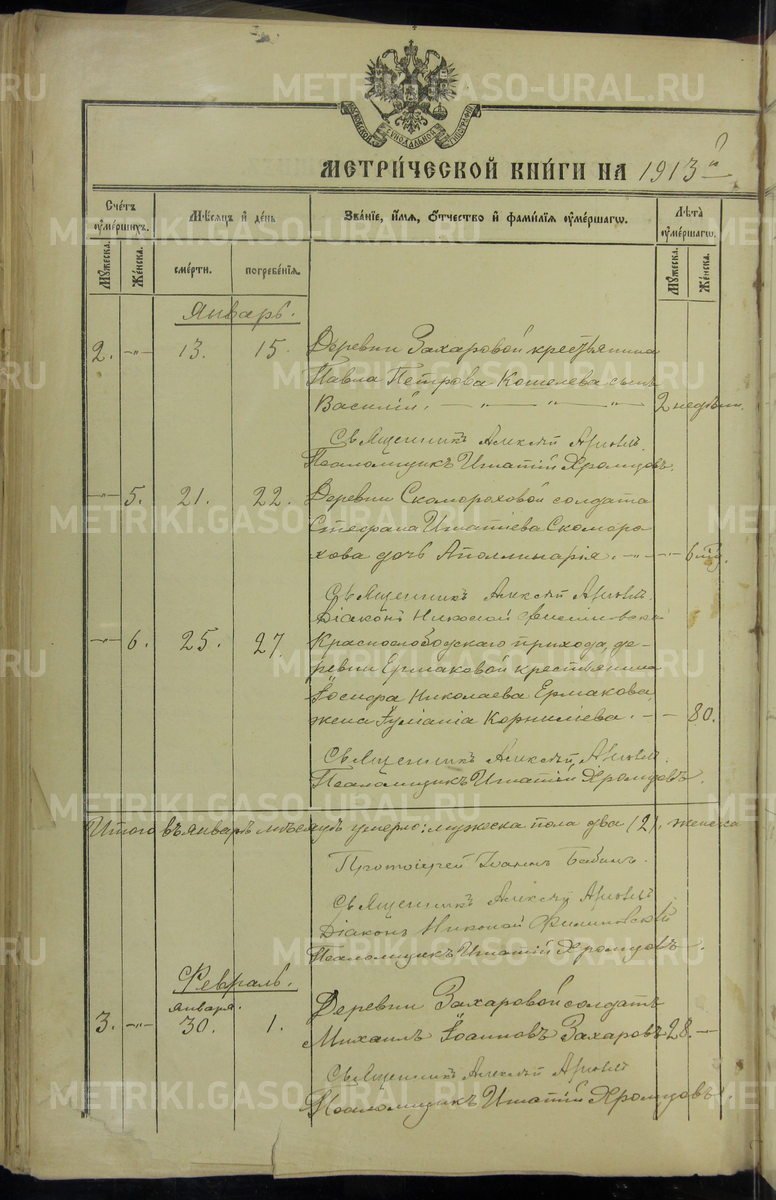 METRIKI.GASO-URAL.RU
МЕТРИ́ЧЕСКОЙ КНИ́ГИ НА 1913
Счётъ ѹме́ршихъ.
Мѹ́жеска.
Же́нска.
Мѣ́сяцъ и де́нь
сме́рти.
погребе́нїя.
Зва́нїе, и́мя, ѻ́тчество и фами́лїя ѹме́ршагѡ.
Лѣ́та ѹме́ршагѡ.
Мѹ́жеска.
Же́нска.
Январь.
2. -"- 13. 15. Деревни Захаровой крестьянина
Павла Петрова Кошелева сынъ
Василій. 2 недѣли.
Священникъ Алексій
Псаломщикъ Игнатій Хромцовъ.
-"- 5. 21. 22. Деревни Скомороховой солдата
Стефана Игнатіева Скоморо-
хова дочь Аполлинарія. -"- 6
Священникъ Алексій
Діаконъ Николай
-"- 6. 25. 27. Краснослободскаго прихода, де-
ревни Ермаковой крестьянина
Іосифа Николаева Ермакова,
жена Іуліанія Корниліева. - - 80.
Священникъ Алексій
Псаломщикъ Игнатій Хромцовъ.
Итого въ январѣ мѣсяцѣ умерло: мужеска пола два (2), женска
Протоіерей Іоаннъ Бабинъ.
Священникъ Алексій
Діаконъ Николай
Псаломщикъ Игнатій Хромцовъ.
Февраль.
января.
3. -"- 30. 1. Деревни Захаровой солдатъ
Михаилъ Іоанновъ Захаровъ 28. -
Священникъ Алексій
Псаломщикъ Игнатій Хромцовъ.